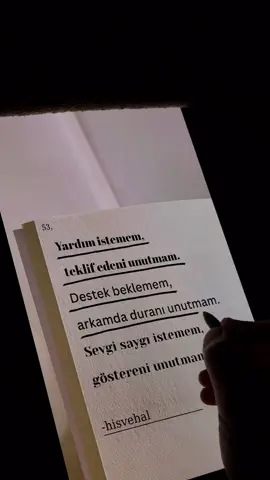 53,
Yardım istemem,
teklif edeni unutmam.
Destek beklemem,
arkamda duranı unutmam.
Sevgi saygı istemem,
göstereni unutmam
-hisvehal